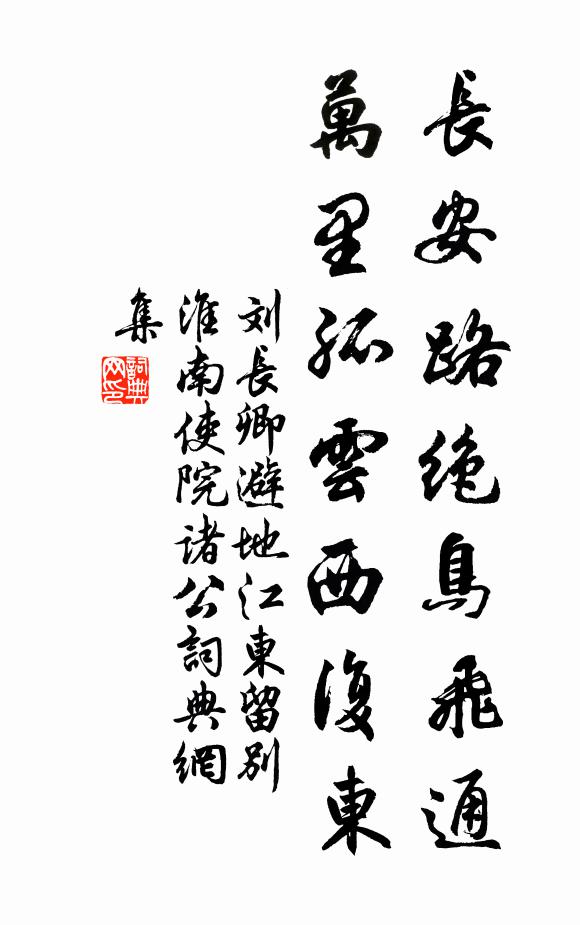 長安路絶鳥飛通
萬里孤雲西復東
刘長卿避地江東留別
淮南使院諸公詞典網
集
詞典
网印